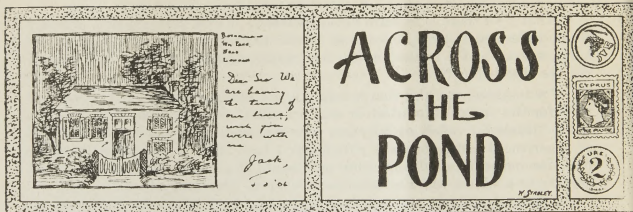 Dear Sue We
are having
the time of
our lives,
wish you
were with
us
Jack,
ACROSS
THE
POND
W STABLEY
CYPRUS
2